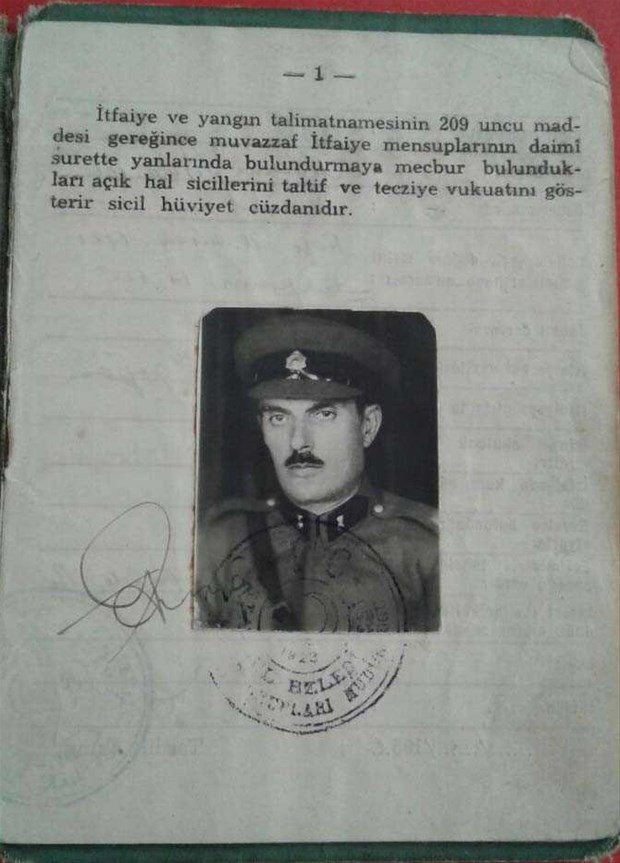 — 1 —
İtfaiye ve yangın talimatnamesinin 209 uncu mad-
desi gereğince muvazzaf İtfaiye mensuplarının daimî
surette yanlarında bulundurmaya mecbur bulunduk-
ları açık hal sicillerini taltif ve tecziye vukuatını gös-
terir sicil hüviyet cüzdanıdır.